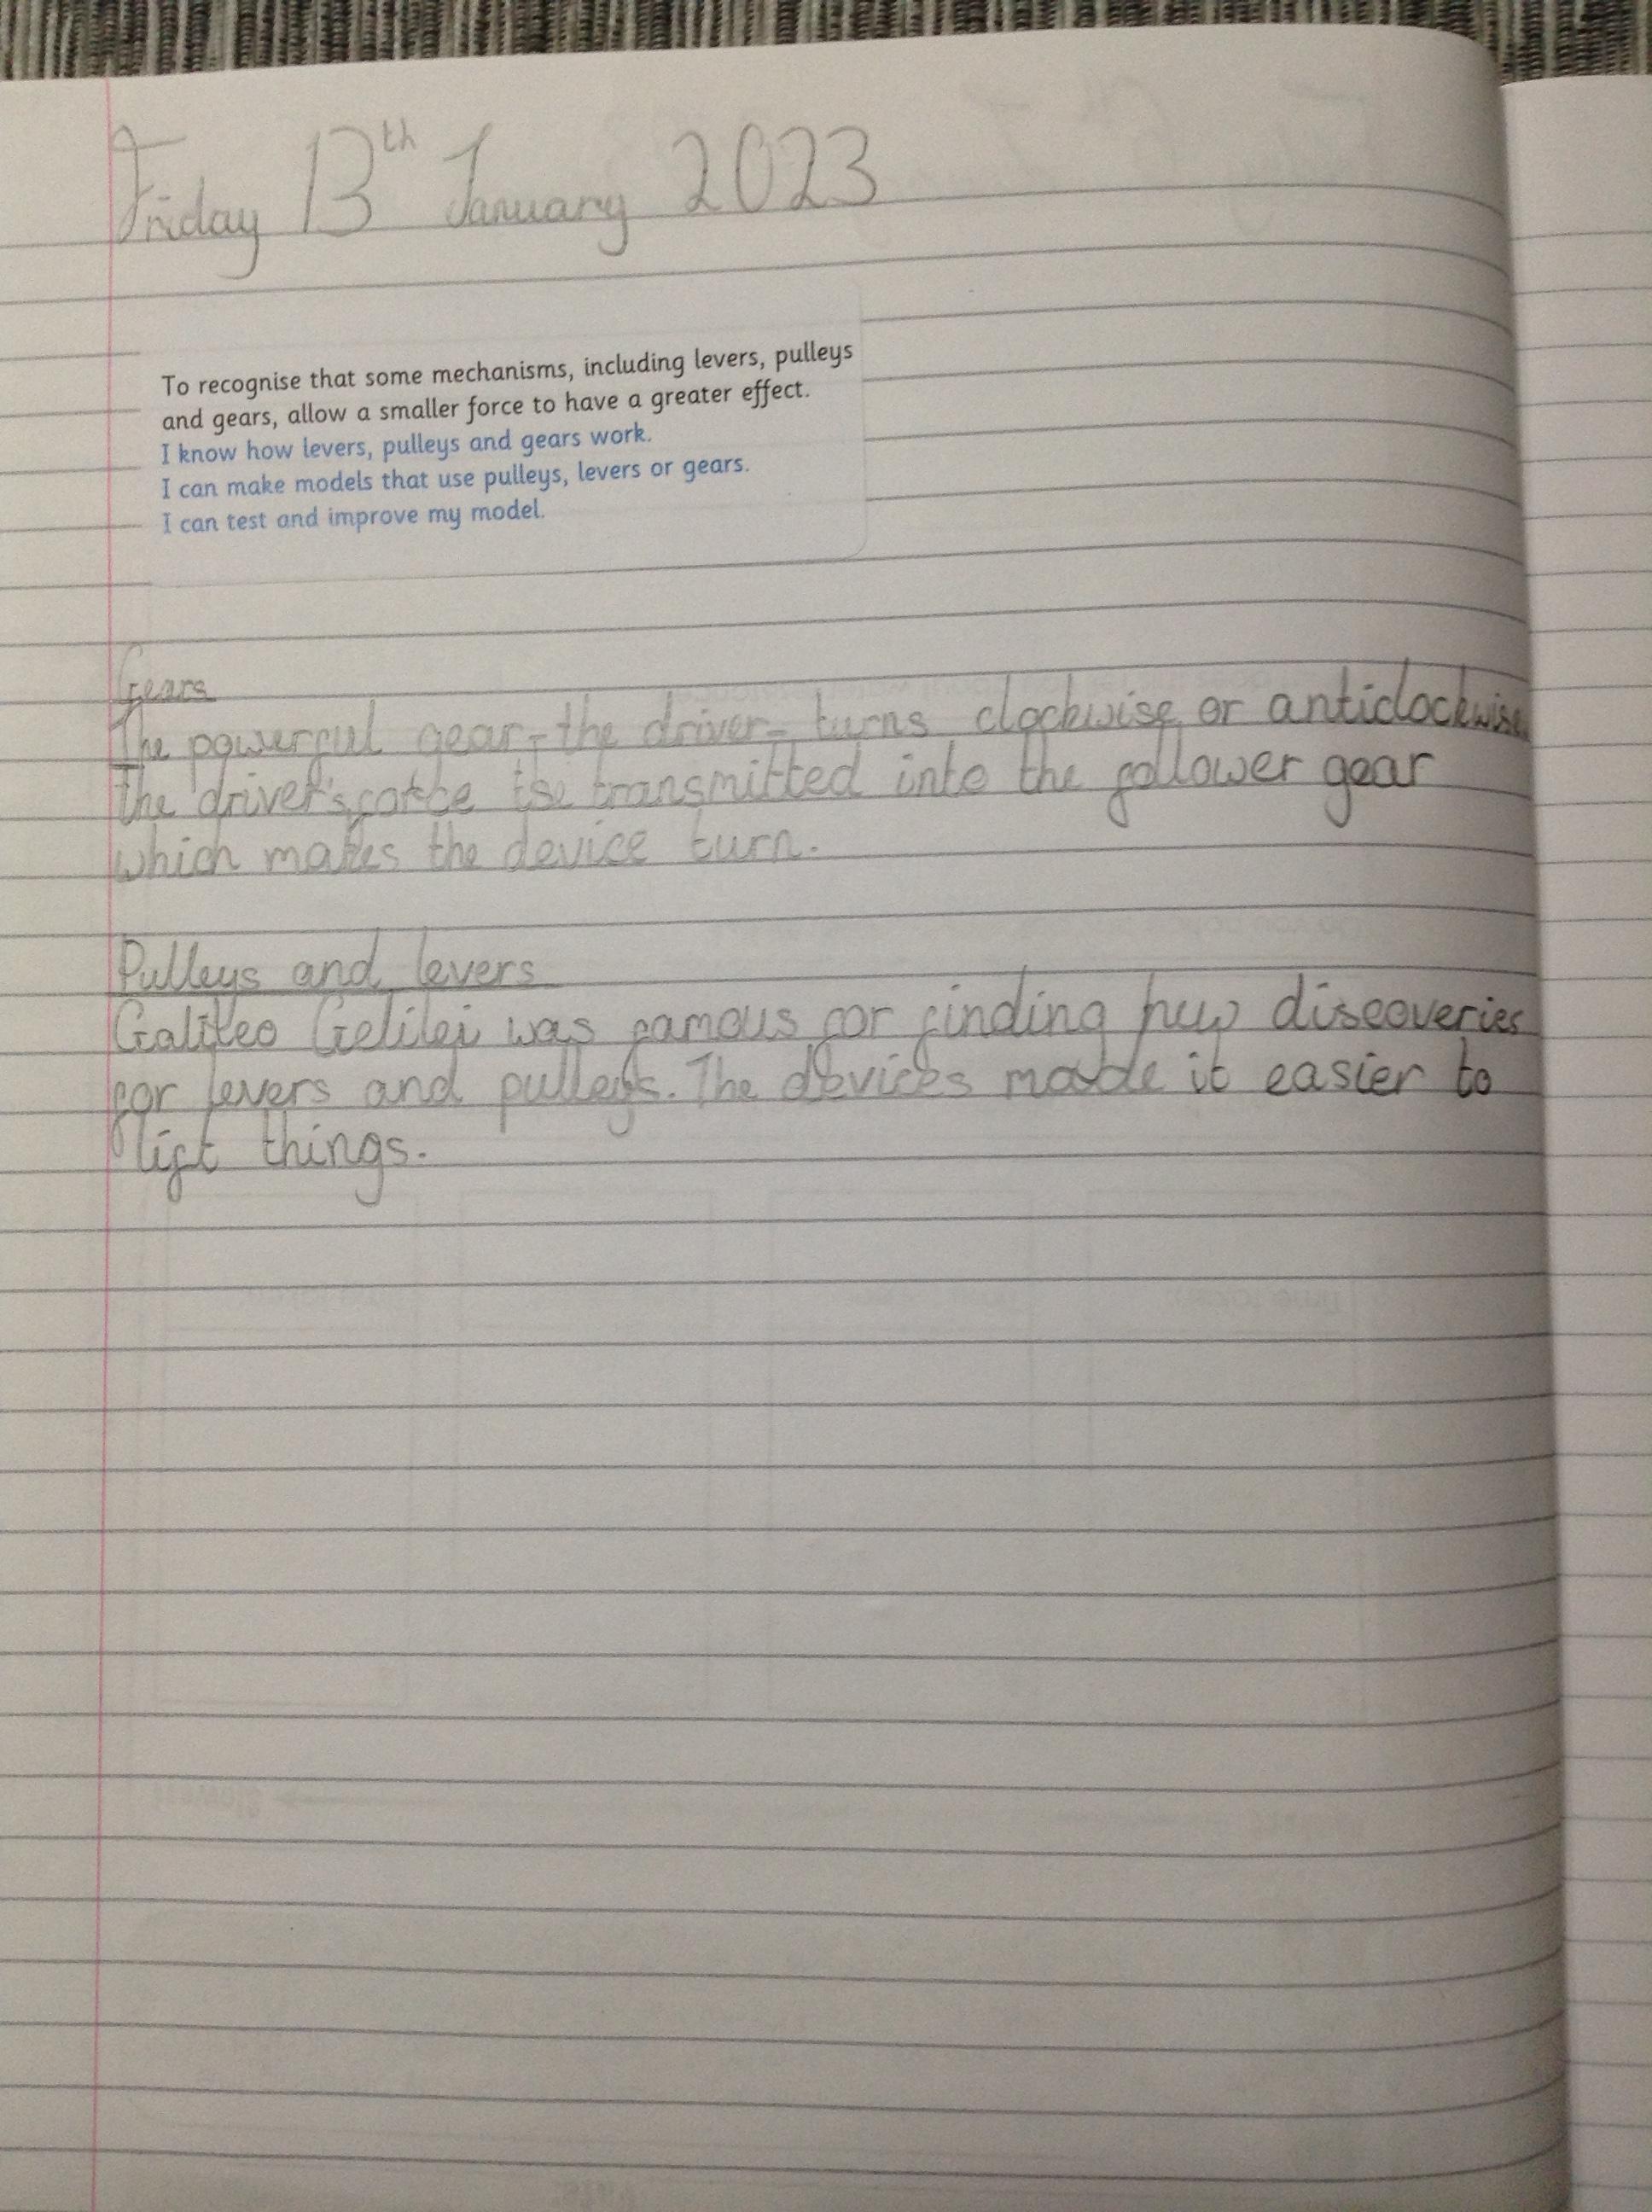 Friday 13th January 2023
To recognise that some mechanisms, including levers, pulleys
and gears, allow a smaller force to have a greater effect.
I know how levers, pulleys and gears work.
I can make models that use pulleys, levers or gears.
I can test and improve my model.
Gears
The powerful gear-the driver- turns clockwise or anticlockwise
The driver's force is transmitted into the follower gear
which makes the device turn.
Pulleys and levers
Galileo Gelilei was famous for finding new discoveries
for levers and pulleys. The devices made it easier to
lift things.